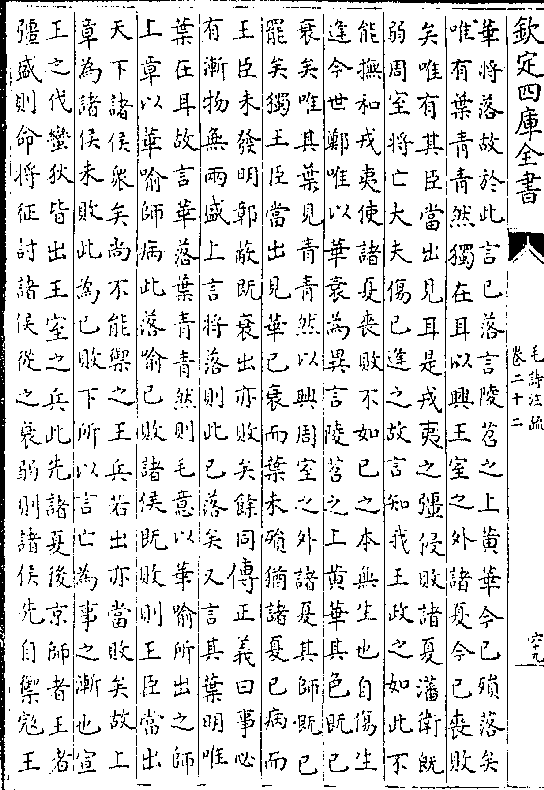 欽定四庫全書
毛詩注疏
卷二十二
六十九
華將落故於此言已落言陵苕之上黄華今已殞落矣
唯有葉青青然獨在耳以興王室之外諸夏今已喪敗
矣唯有其臣當出見耳是戎夷之彊侵敗諸夏藩衛既
弱周室將亡大夫傷已逢之故言知我王政之如此不
能撫和戎夷使諸夏喪敗不如已之本無生也自傷生
逢今世鄭唯以華衰為異言陵苕之上黄華其色既已
衰矣唯其葉見青青然以興周室之外諸夏其師既已
罷矣獨王臣當出見華已衰而葉未殞猶諸夏已病而
王臣未發明鄣蔽既衰出亦敗矣餘同傳正義曰事必
有漸物無兩盛上言將落則此已落矣又言其葉明唯
葉在耳故言華落葉青青然則毛意以華喻所出之師
上章以華喻師病此落喻已敗諸侯既敗則王臣當出
天下諸侯衆矣尚不能禦之王兵若出亦當敗矣故上
章為諸侯未敗此為已敗下所以言亡為事之漸也宣
王之代蠻狄皆出王室之兵此先諸夏後京師者王者
彊盛則命將征討諸侯從之衰弱則諸侯先自禦寇王